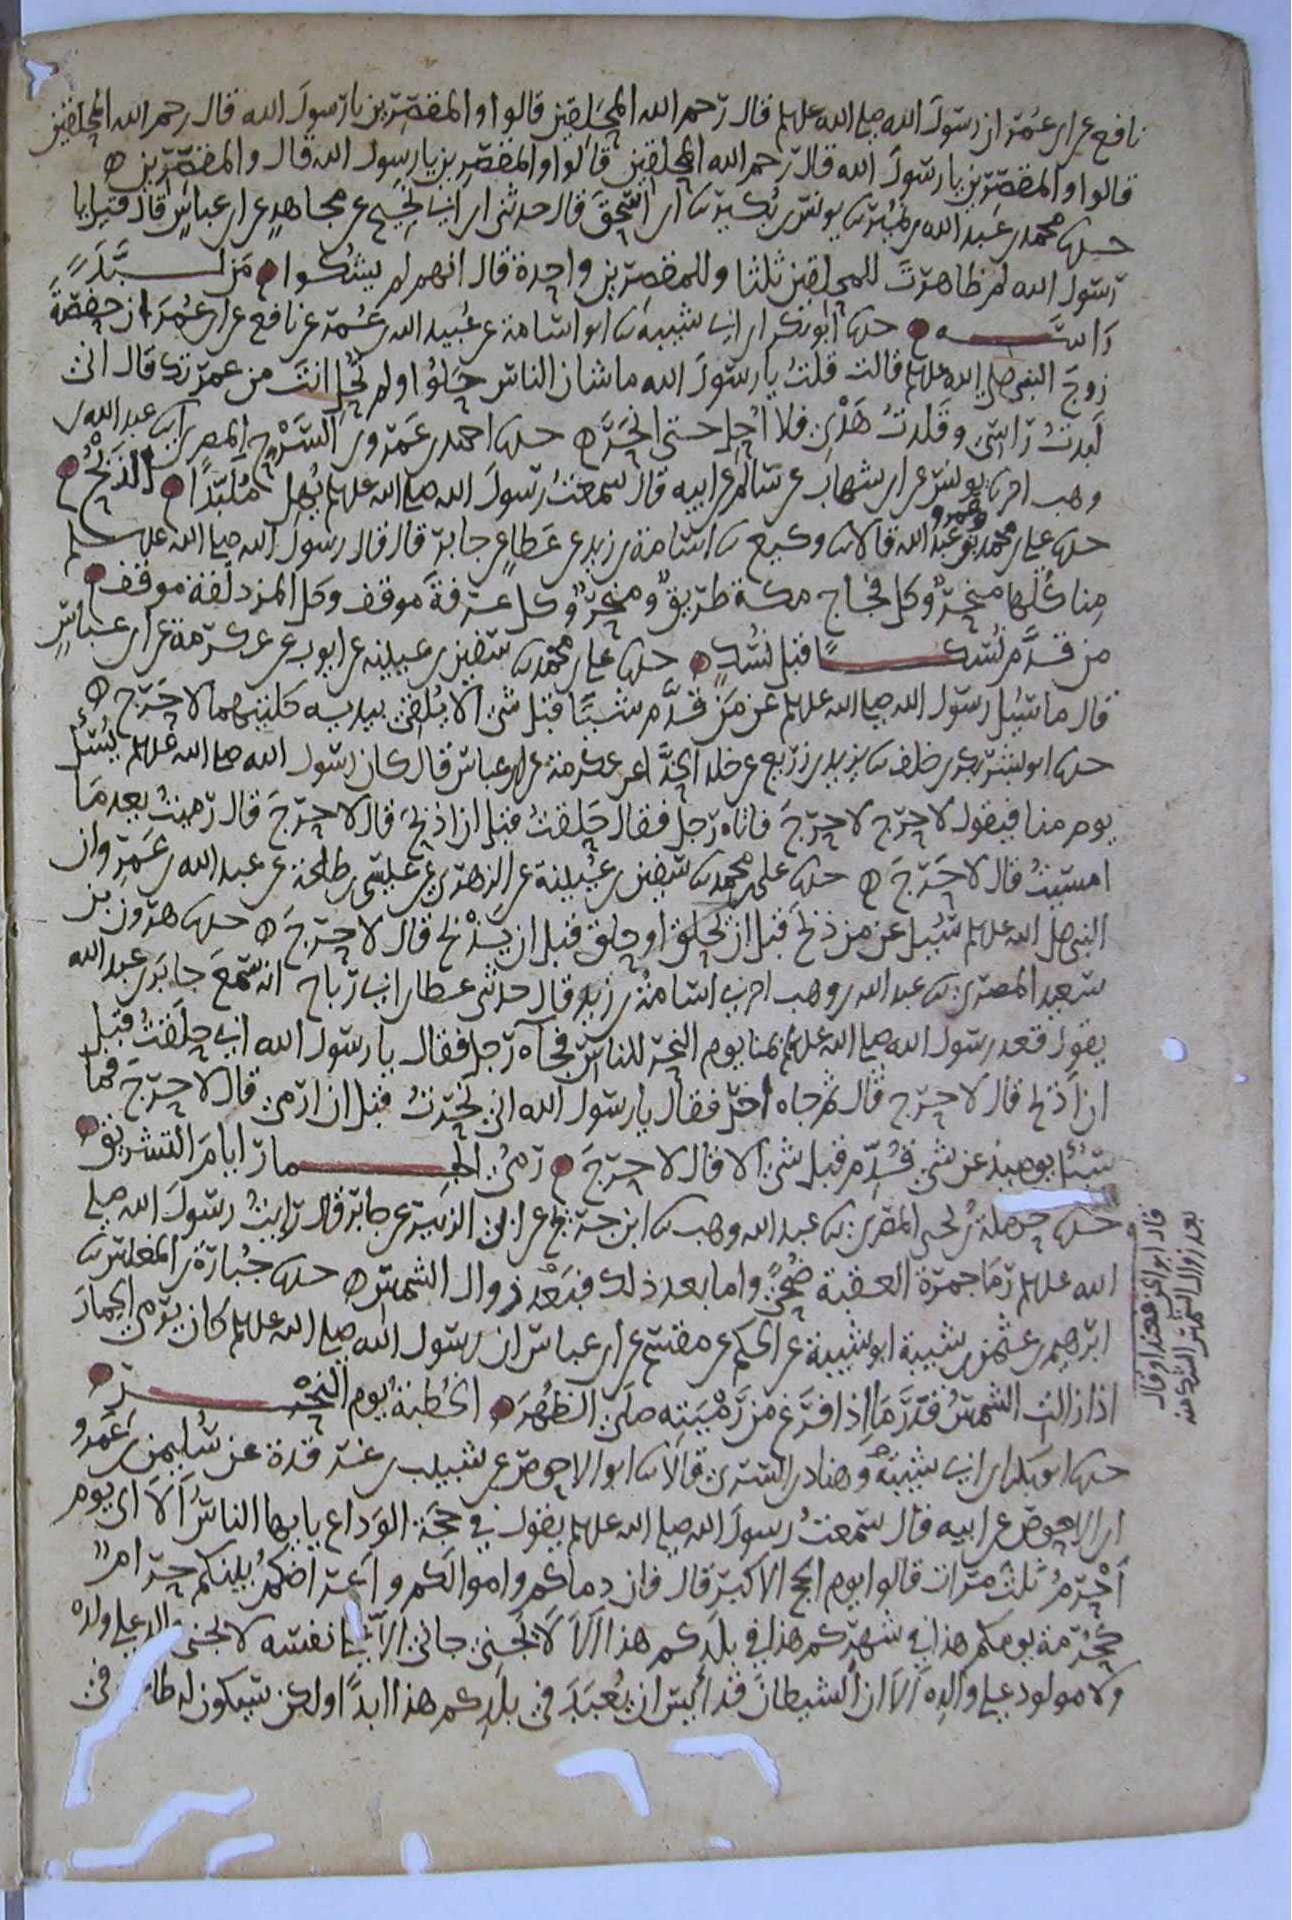 نافع عن ابن عمر ان رسول الله صلى الله عليه وسلم قال رحم الله المحلقين قالوا والمقصرين يا رسول الله قال رحم الله المحلقين
قالوا والمقصرين يا رسول الله قال رحم الله المحلقين قالوا والمقصرين يا رسول الله قال والمقصرين ه
حدثنا محمد بن عبد الله بن نمير ثنا يونس بن بكير ثنا ابن اسحق قال حدثني ابن ابي نجيح عن مجاهد عن ابن عباس قال قيل يا
رسول الله لم ظاهرت للمحلقين ثلثا وللمقصرين واحدة قال انهم لم يشكوا من لبد
راسه حدثنا ابو بكر ابن ابي شيبة ثنا ابو اسامة عن عبيد الله بن عمر عن نافع عن ابن عمر ان حفصة
زوج النبي صلى الله عليه وسلم قالت قلت يا رسول الله ما شان الناس حلوا ولم تحل انت من عمرتك قال اني
لبدت راسي وقلدت هديي فلا احل حتى انحر ه حدثنا احمد بن عمرو بن السرح المصري ثنا عبد الله بن
وهب اخبرنا يونس عن ابن شهاب عن سالم عن ابيه قال سمعت رسول الله صلى الله عليه وسلم يهل ملبدا الذبح
حدثنا علي بن محمد وعمرو بن عبد الله قالا ثنا وكيع ثنا اسامة بن زيد عن عطاء عن جابر قال قال رسول الله صلى الله عليه وسلم
منا كلها منحر وكل فجاج مكة طريق ومنحر وكل عرفة موقف وكل المزدلفة موقف
من قدم نسكا قبل نسك حدثنا علي بن محمد ثنا سفين بن عيينه عن ايوب عن عكرمة عن ابن عباس
قال ما سئل رسول الله صلى الله عليه وسلم عن من قدم شيئا قبل شئ الا يلقي بيديه كلتيهما لا حرج ه
حدثنا ابو بشر بكر بن خلف ثنا يزيد بن زريع عن خلد الحذا عن عكرمة عن ابن عباس قال كان رسول الله صلى الله عليه وسلم يسئل
يوم منا فيقول لا حرج لا حرج فاتاه رجل فقال حلقت قبل ان اذبح قال لا حرج قال رميت بعد ما
امسيت قال لا حرج ه حدثنا علي بن محمد ثنا سفين بن عيينة عن الزهري عن عيسى بن طلحة عن عبد الله بن عمرو ان
النبي صلى الله عليه وسلم سئل عن من ذبح قبل ان يحلق او حلق قبل ان يذبح قال لا حرج ه حدثنا هرون بن
سعيد المصري ثنا عبد الله بن وهب اخبرني اسامة بن زيد قال حدثني عطا بن ابي رباح انه سمع جابر بن عبد الله
يقول قعد رسول الله صلى الله عليه وسلم بمنا يوم النحر للناس فجآه رجل فقال يا رسول الله اني حلقت قبل
ان اذبح قال لا حرج قال ثم جاه اخر فقال يا رسول الله اني نحرت قبل ان ارمي قال لا حرج فما
سئل يوميذ عن شي قدم قبل شئ الا قال لا حرج رمي الجمار ايام التشريق
حدثنا حرملة بن يحيى المصري ثنا عبد الله وهب ثنا ابن جريج عن ابي الزبير عن جابر قال رايت رسول الله صلى
الله عليه وسلم رما جمرة العقبة ضحى واما بعد ذلك فبعد زوال الشمس ه حدثنا جبارة بن المغلس ثنا
ابرهيم بن عثمن بن شيبة ابو شيبة عن الحكم عن مقسم عن ابن عباس ان رسول الله صلى الله عليه وسلم كان يرمي الجمار
اذا زالت الشمس قدر ما اذا فرغ من رميته صلى الظهر الخطبة يوم النحر
حدثنا ابو بكر ابن ابي شيبة وهناد بن السري قالا ثنا ابو الاحوص عن شبيب بن غرقدة عن سليمن بن عمرو
ابن الاحوص عن ابيه قال سمعت رسول الله صلى الله عليه وسلم يقول في حجة الوداع يايها الناس الا اي يوم
احرم ثلث مرات قالوا يوم الحج الاكبر قال فان دماكم واموالكم واعراضكم بينكم حرام
كحرمة يومكم هذا في شهركم هذا في بلدكم هذا الا لا يجني جاني الا على نفسه لا يجني والد على ولده
ولا مولود على والده الا ان الشيطان قد أيس ان يعبد في بلدكم هذا ابدا ولكن سيكون له طا في